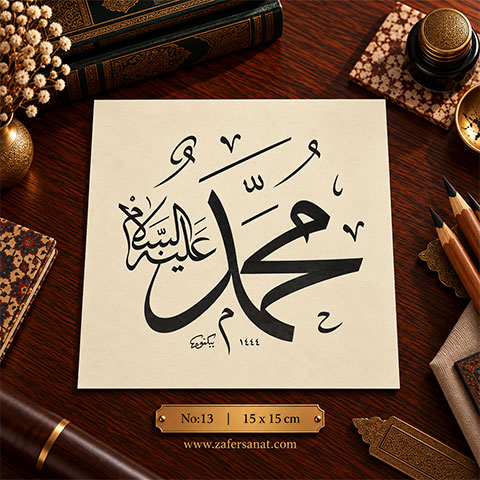 محمد
عليه السلام
١٤٤٤
No:13 | 15 x 15 cm
www.zafersanat.com